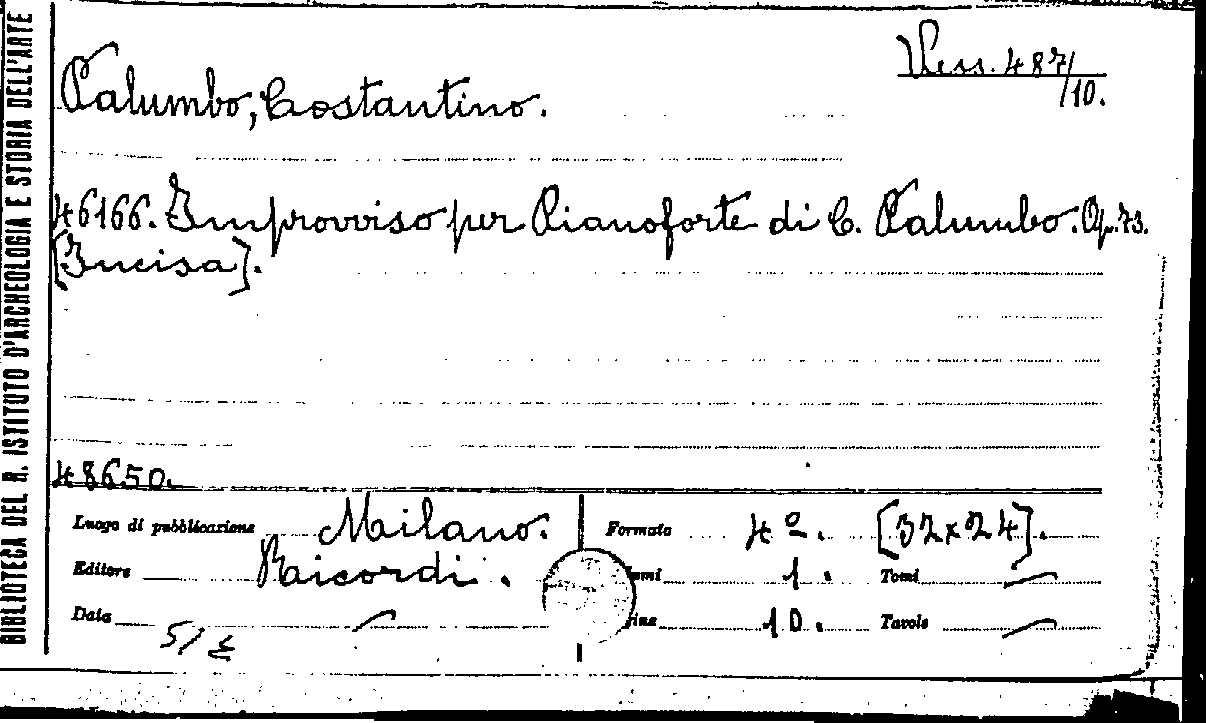 BIBLIOTECA DEL R. ISTITUTO D'ARCHEOLOGIA E STORIA DELL'ARTE
Vess. 487/10.
Palumbo, Costantino.
46166. Improvviso per Pianoforte di C. Palumbo. Op. 73.
[Incisa].
48650.
Luogo di pubblicazione Milano. Formato 4º. [32x24].
Editore Ricordi. 1. Tomi —
Data — 10. Tavole —